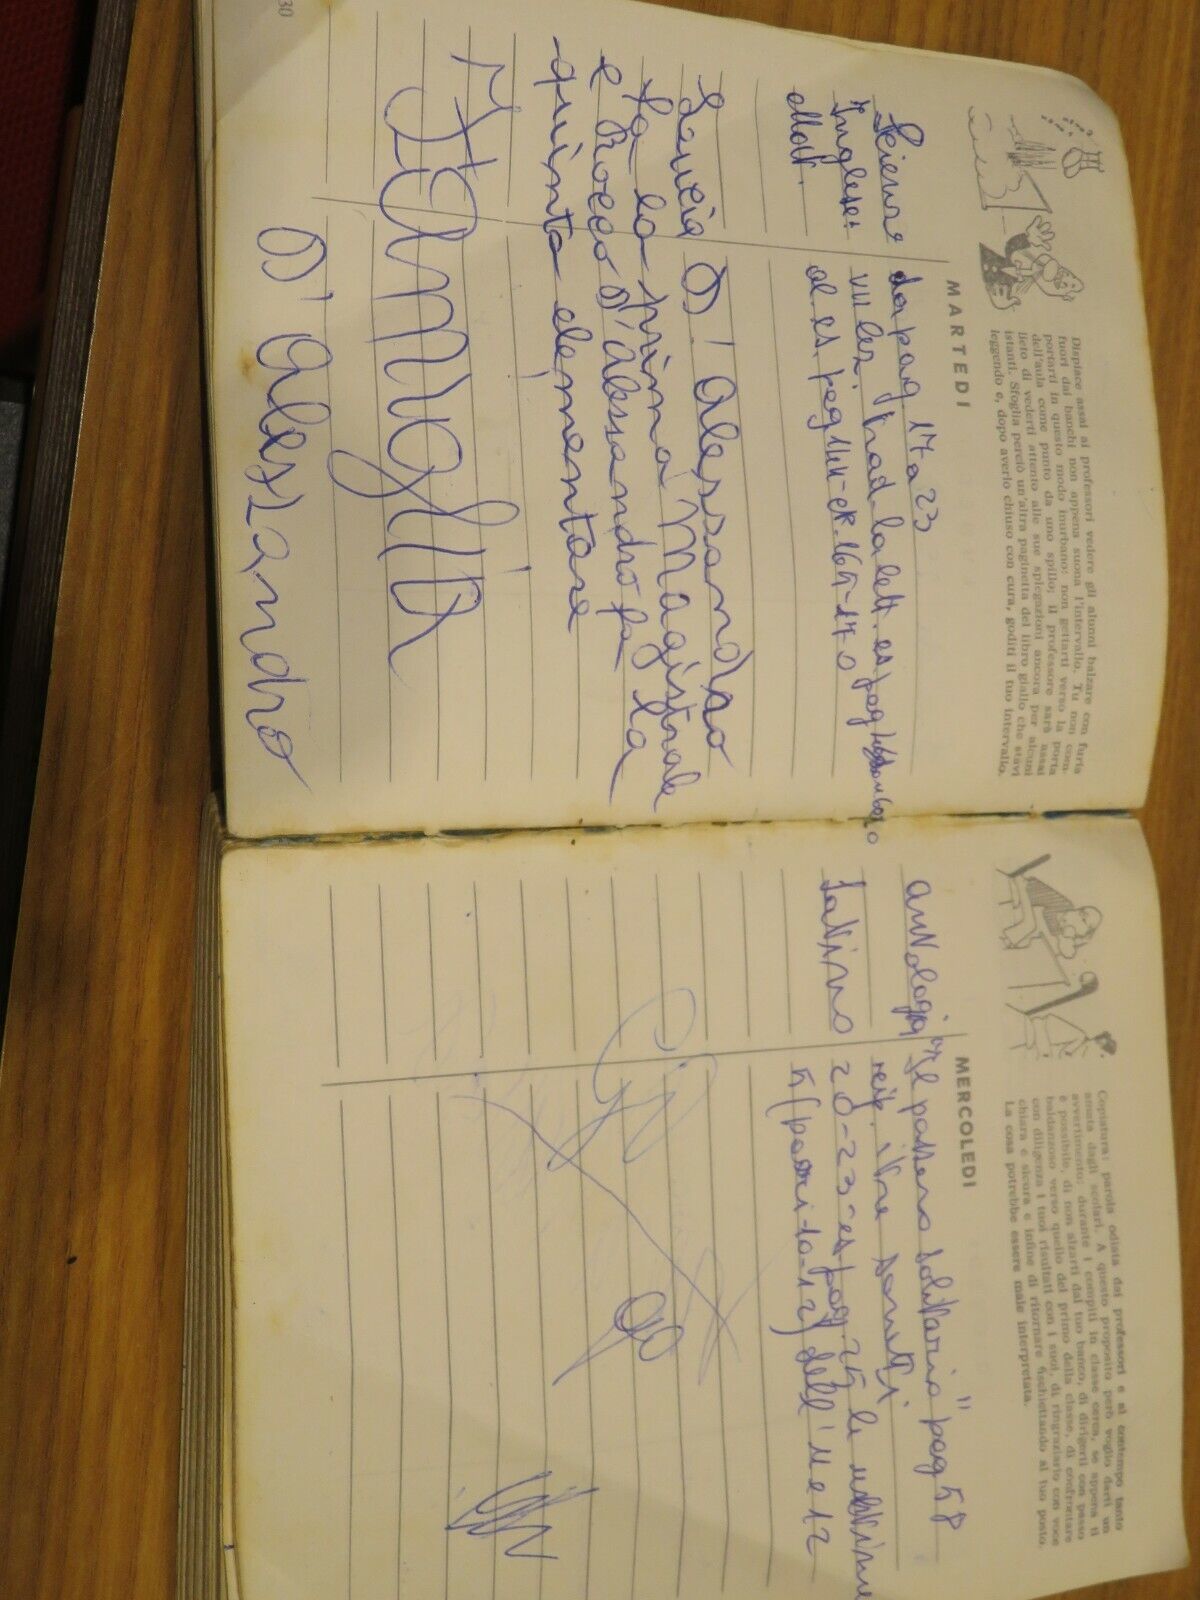 Dispiace assai ai professori vedere gli alunni balzare con furia
fuori dai banchi non appena suona l'intervallo. Tu non com-
portarti in questo modo inurbano: non gettarti verso la porta
dell'aula come punto da uno spillo; il professore sarà assai
lieto di vederti attento alle sue spiegazioni ancora per alcuni
istanti. Sfoglia perciò un'altra paginetta del libro giallo che stavi
leggendo e, dopo averlo chiuso con cura, goditi il tuo intervallo.
MARTEDI
Scienze da pag 17 a 23
Inglese: VII lez. trad. la lett. es pag
Mat. al es. pag 164-170
Lucia D'Alessandro
fa la prima Magistrale
e Rocco D'Alessandro fa la
quinta elementare
Famiglia
D'Alessandro
30
Copiatura: parola odiata dai professori e al contempo tanto
amata dagli scolari. A questo proposito però voglio darti un
avvertimento: durante i compiti in classe cerca, se appena ti
è possibile, di non alzarti dal tuo banco, di dirigerti con passo
baldanzoso verso quello del primo della classe, di confrontare
con diligenza i tuoi risultati con i suoi, di ringraziarlo con voce
chiara e sicura e infine di ritornare fischiettando al tuo posto.
La cosa potrebbe essere male interpretata.
MERCOLEDI
antologia "Il passero solitario" pag 58
i tre sonetti
latino 20-23-es pag. 25 le
5 (pari 10-12) dell'11 e 12